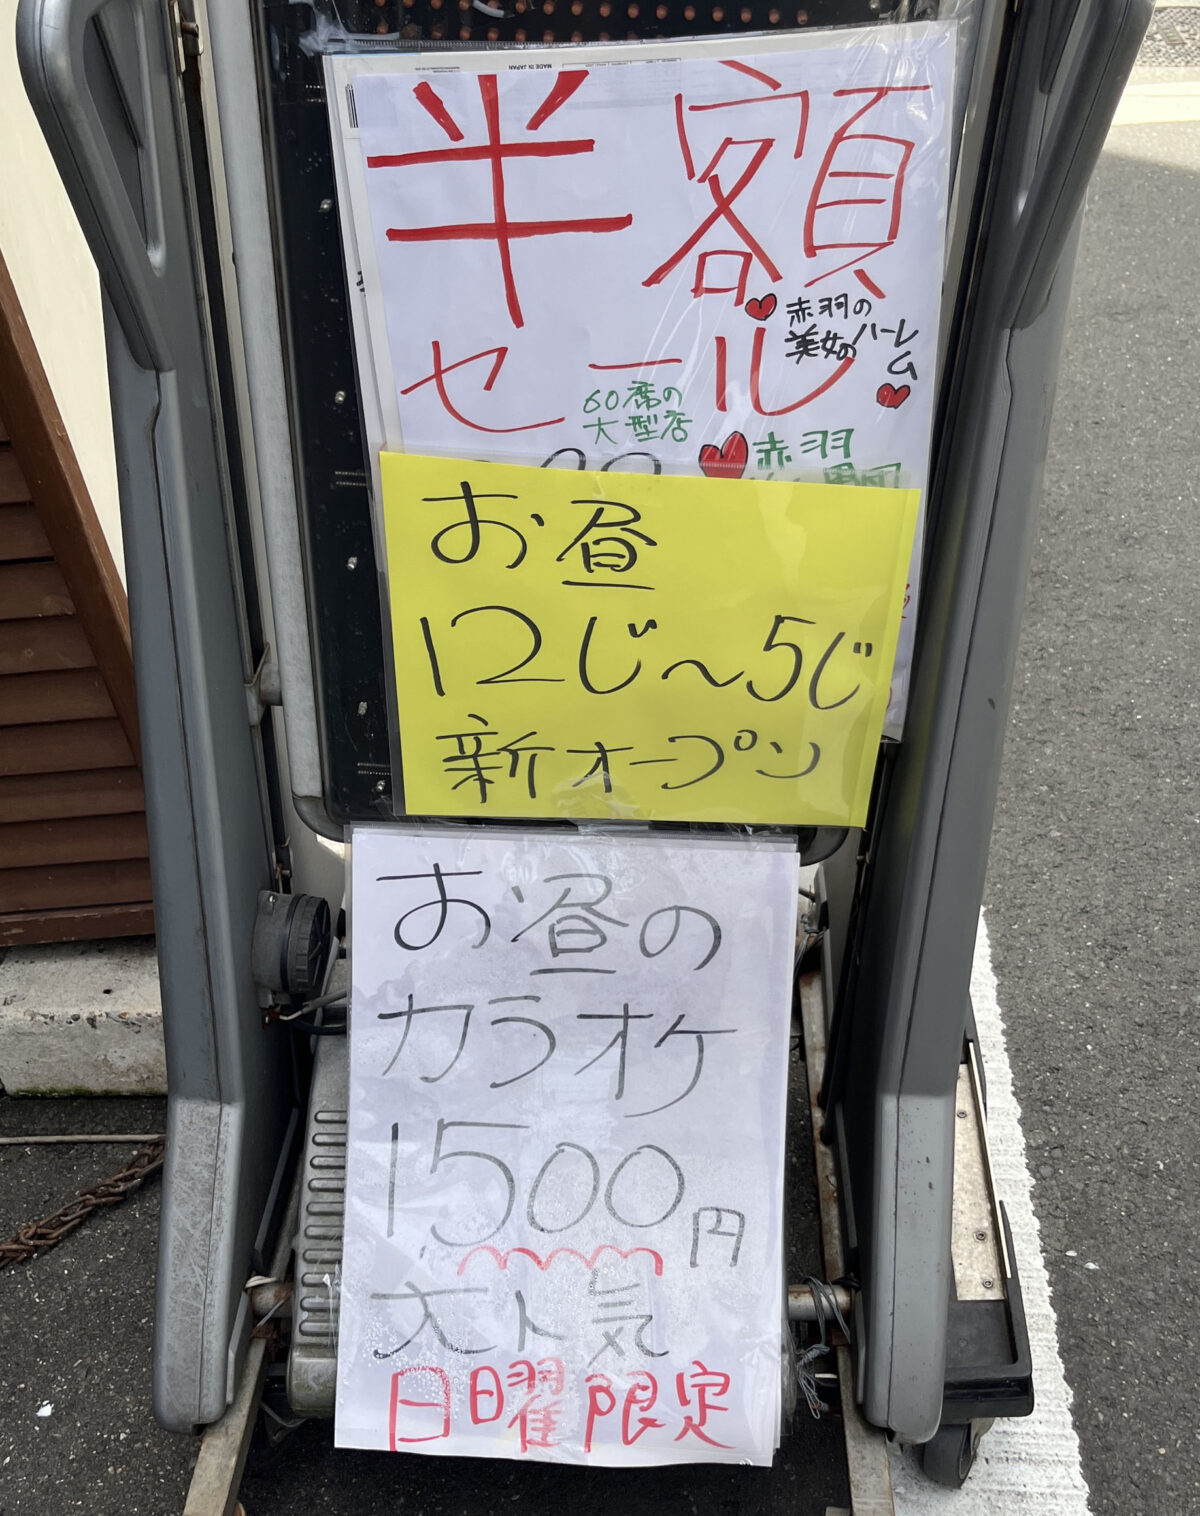 MADE IN JAPAN
半額
セール
赤羽の
美女のハーレ
ム
60席の
大型店
赤羽
お昼
12じ〜5じ
新オープン
お昼の
カラオケ
1,500円
大人気
日曜限定